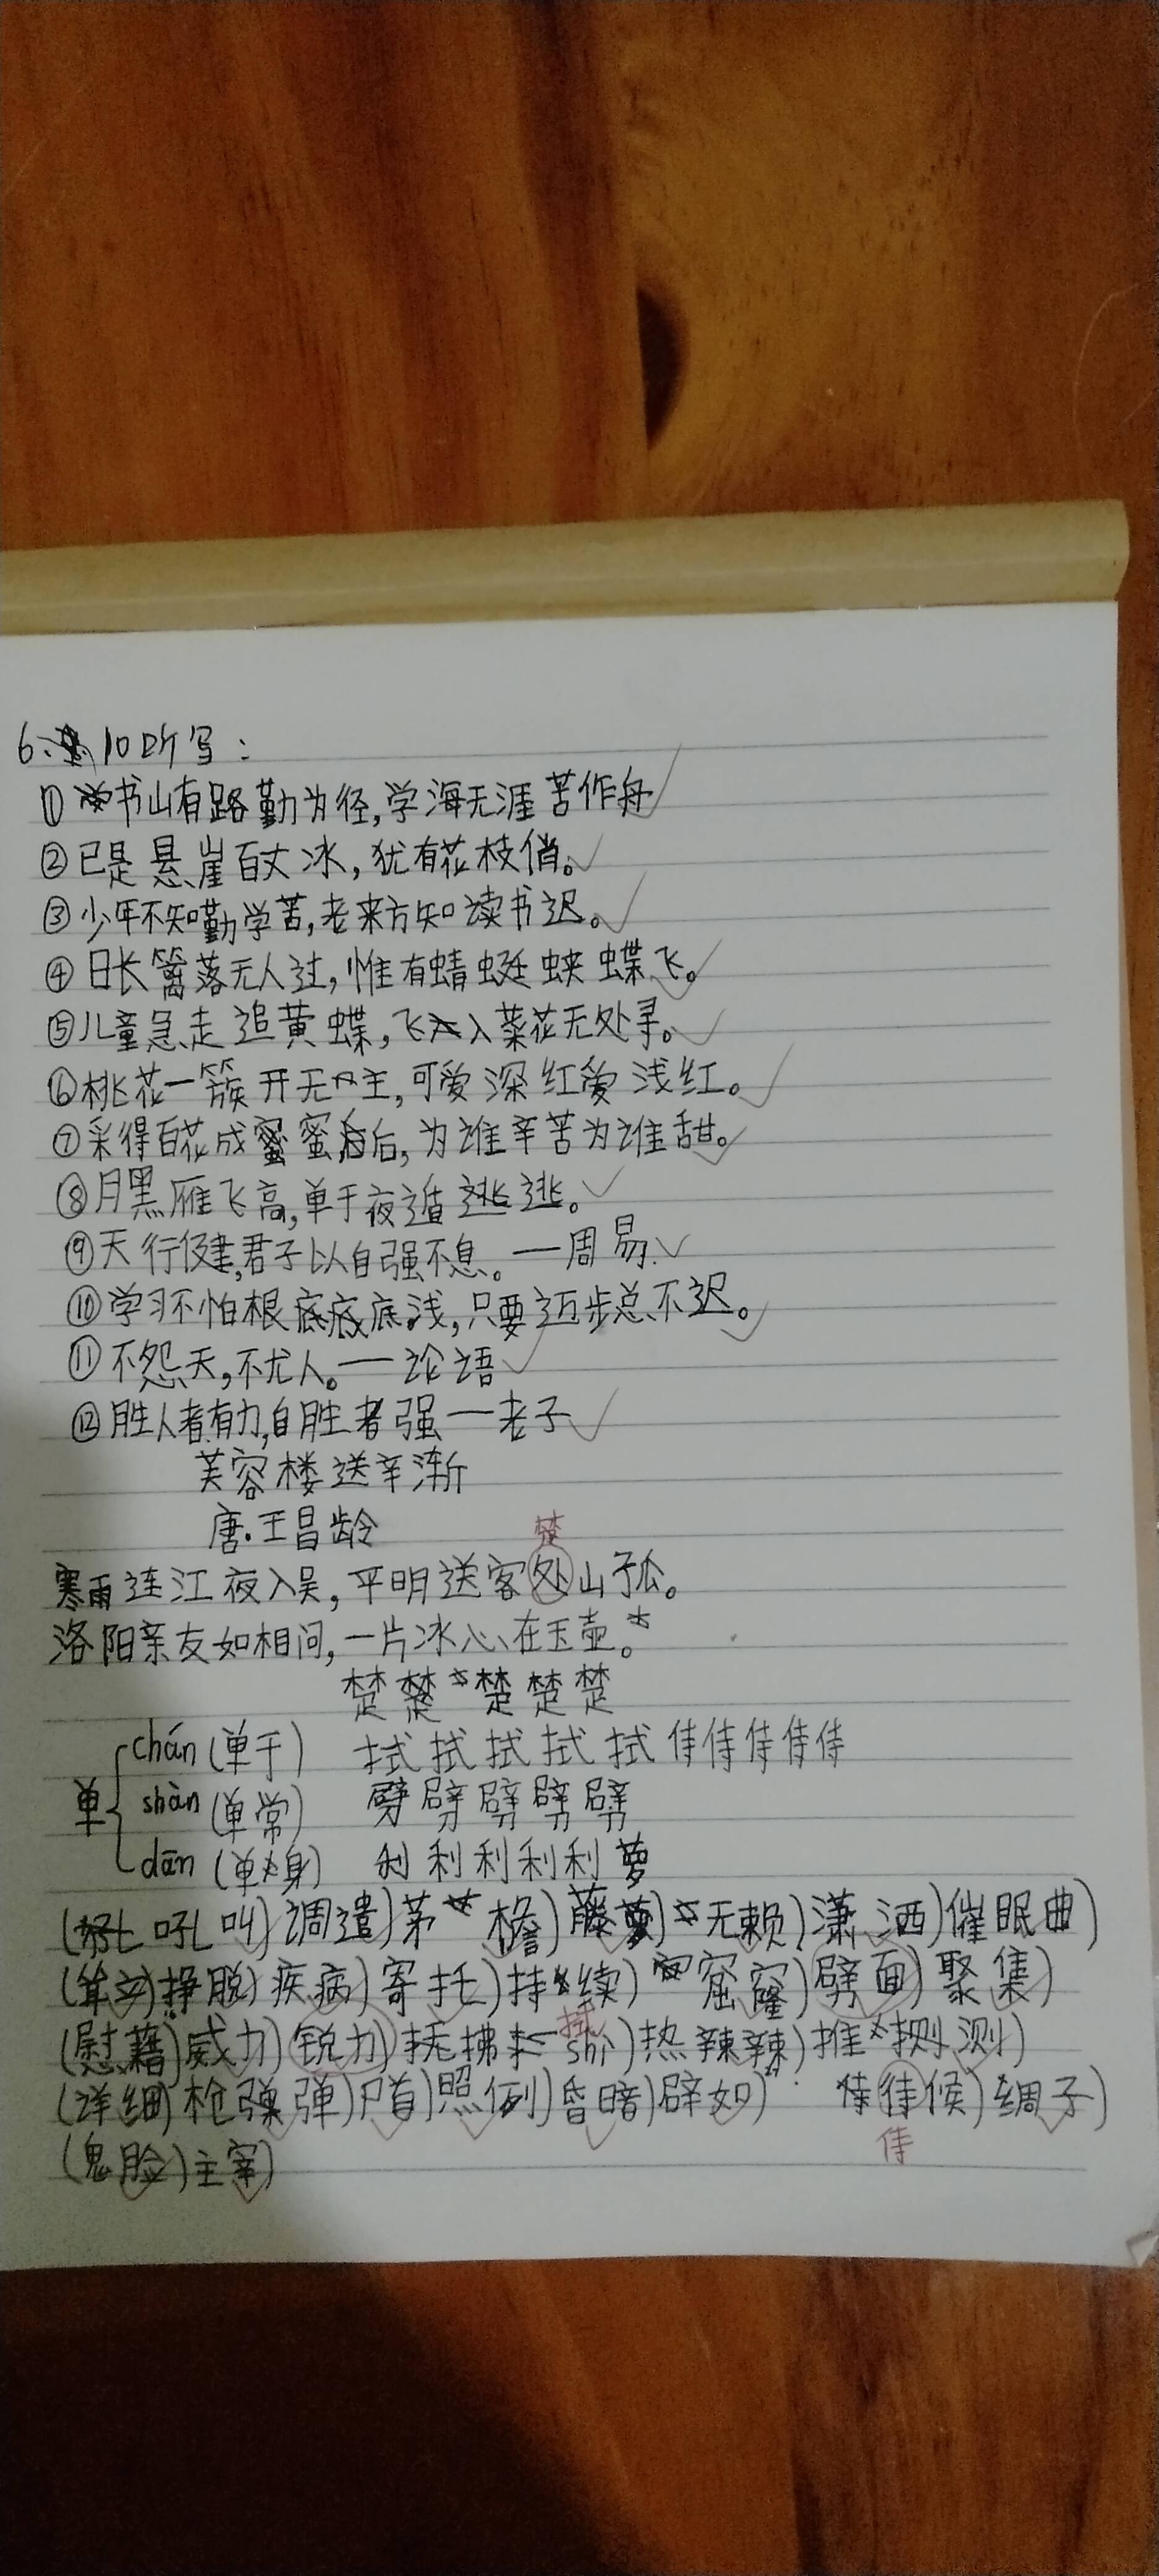 6.10听写：
①书山有路勤为径,学海无涯苦作舟
②已是悬崖百丈冰,犹有花枝俏。
③少年不知勤学苦,老来方知读书迟。
④日长篱落无人过,惟有蜻蜓蛱蝶飞。
⑤儿童急走追黄蝶,飞入菜花无处寻。
⑥桃花一簇开无主,可爱深红爱浅红。
⑦采得百花成蜜后,为谁辛苦为谁甜。
⑧月黑雁飞高,单于夜遁逃。
⑨天行健,君子以自强不息。——周易.
⑩学习不怕根底浅,只要迈步总不迟。
⑪不怨天,不尤人。——论语
⑫胜人者有力,自胜者强——老子
芙蓉楼送辛渐
唐.王昌龄
楚
寒雨连江夜入吴,平明送客处山孤。
洛阳亲友如相问,一片冰心在玉壶。
楚楚楚楚楚
chán(单于) 拭拭拭拭拭侍侍侍侍侍
单 shàn(单常) 劈劈劈劈劈
dān(单身) 利利利利利萝
(吼叫)调遣)茅檐)藤萝)无赖)潇洒)催眠曲)
(耸立)挣脱)疾病)寄托)持续)窟窿)劈面)聚集)
拭
(慰藉)威力)锐力)抚拂shì)热辣辣)推测)
(详细)枪弹)尸首)照例)昏暗)辟如) 待候)绸子)
侍
(鬼脸)主宰)